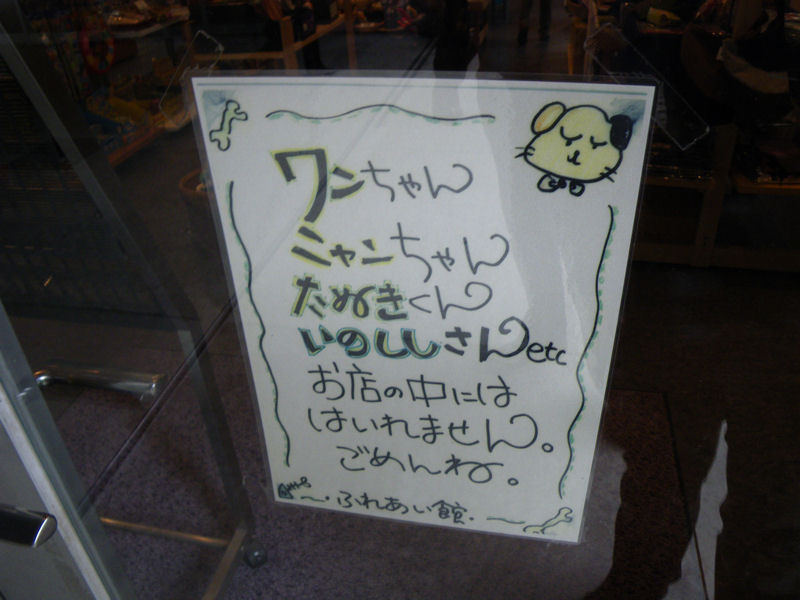 ワンちゃん
ニャンちゃん
たぬきくん
いのししさんetc
お店の中には
はいれません。
ごめんね。
〜・ふれあい館.〜